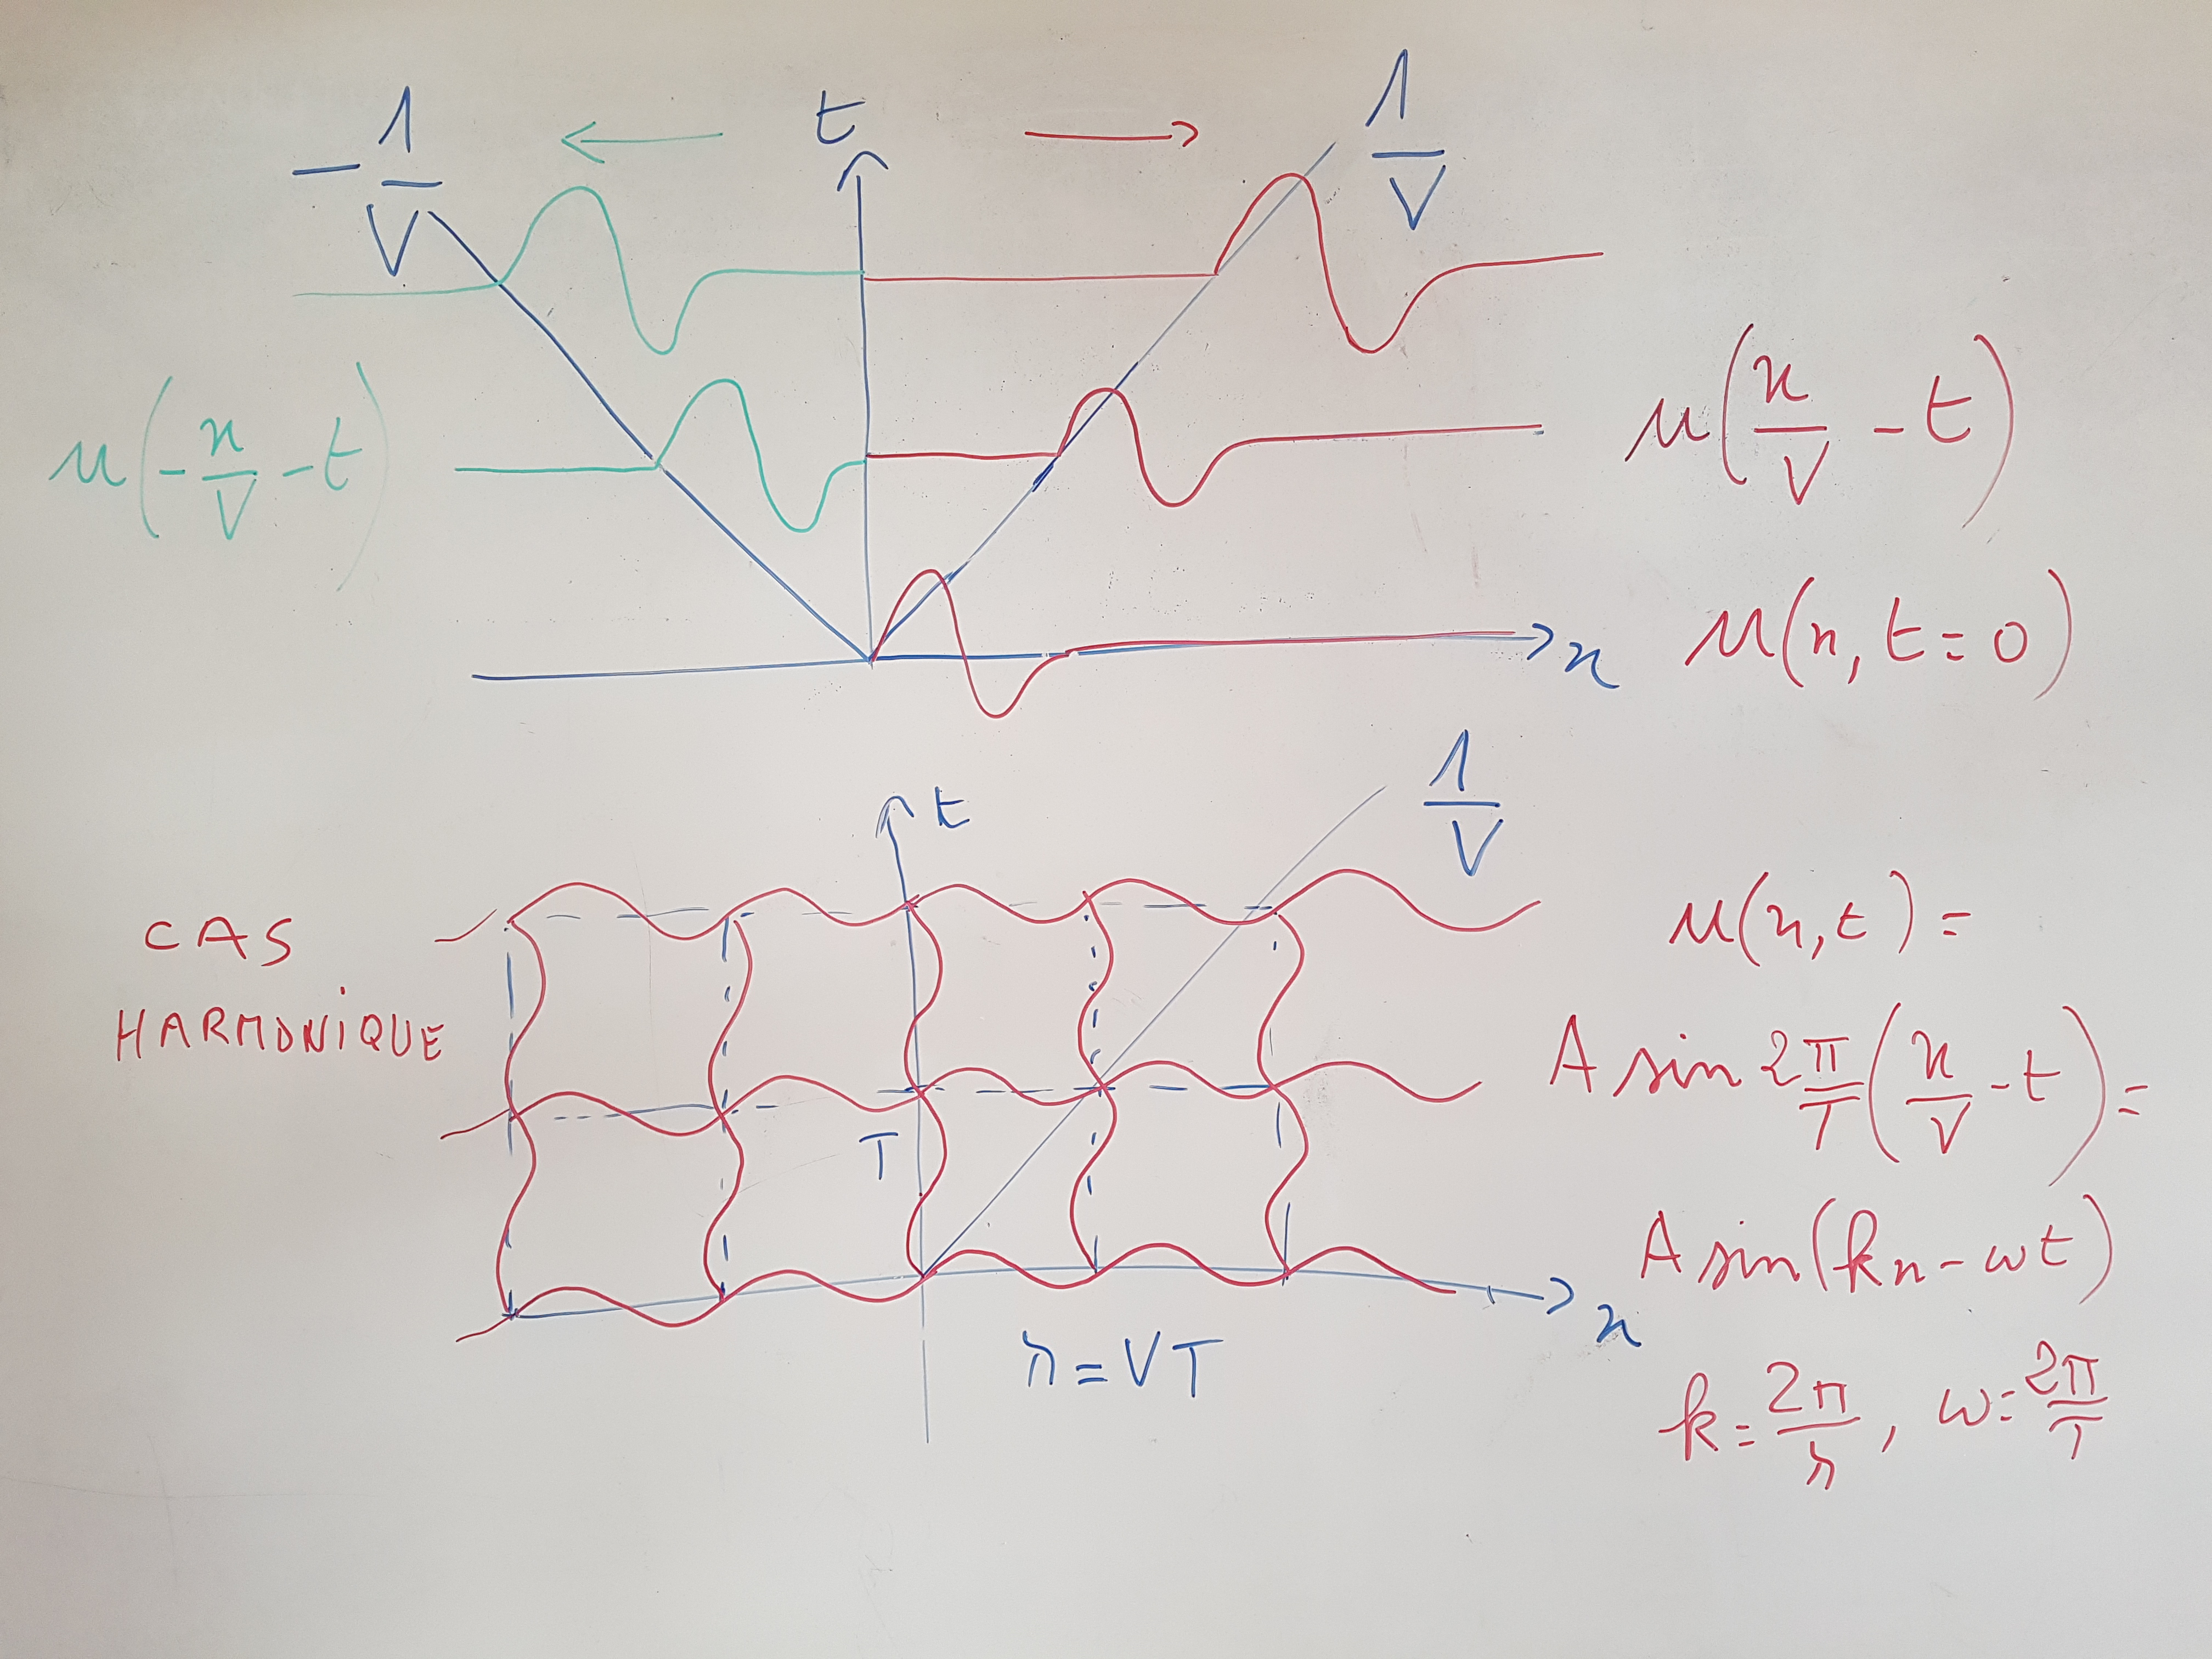 -1/V
t
1/V
u(-x/V - t)
u(x/V - t)
x
u(x, t=0)
t
1/V
CAS
HARMONIQUE
T
x
λ=VT
u(x,t) =
A sin 2π/T (x/V - t) =
A sin(kx-ωt)
k=2π/λ, ω=2π/T